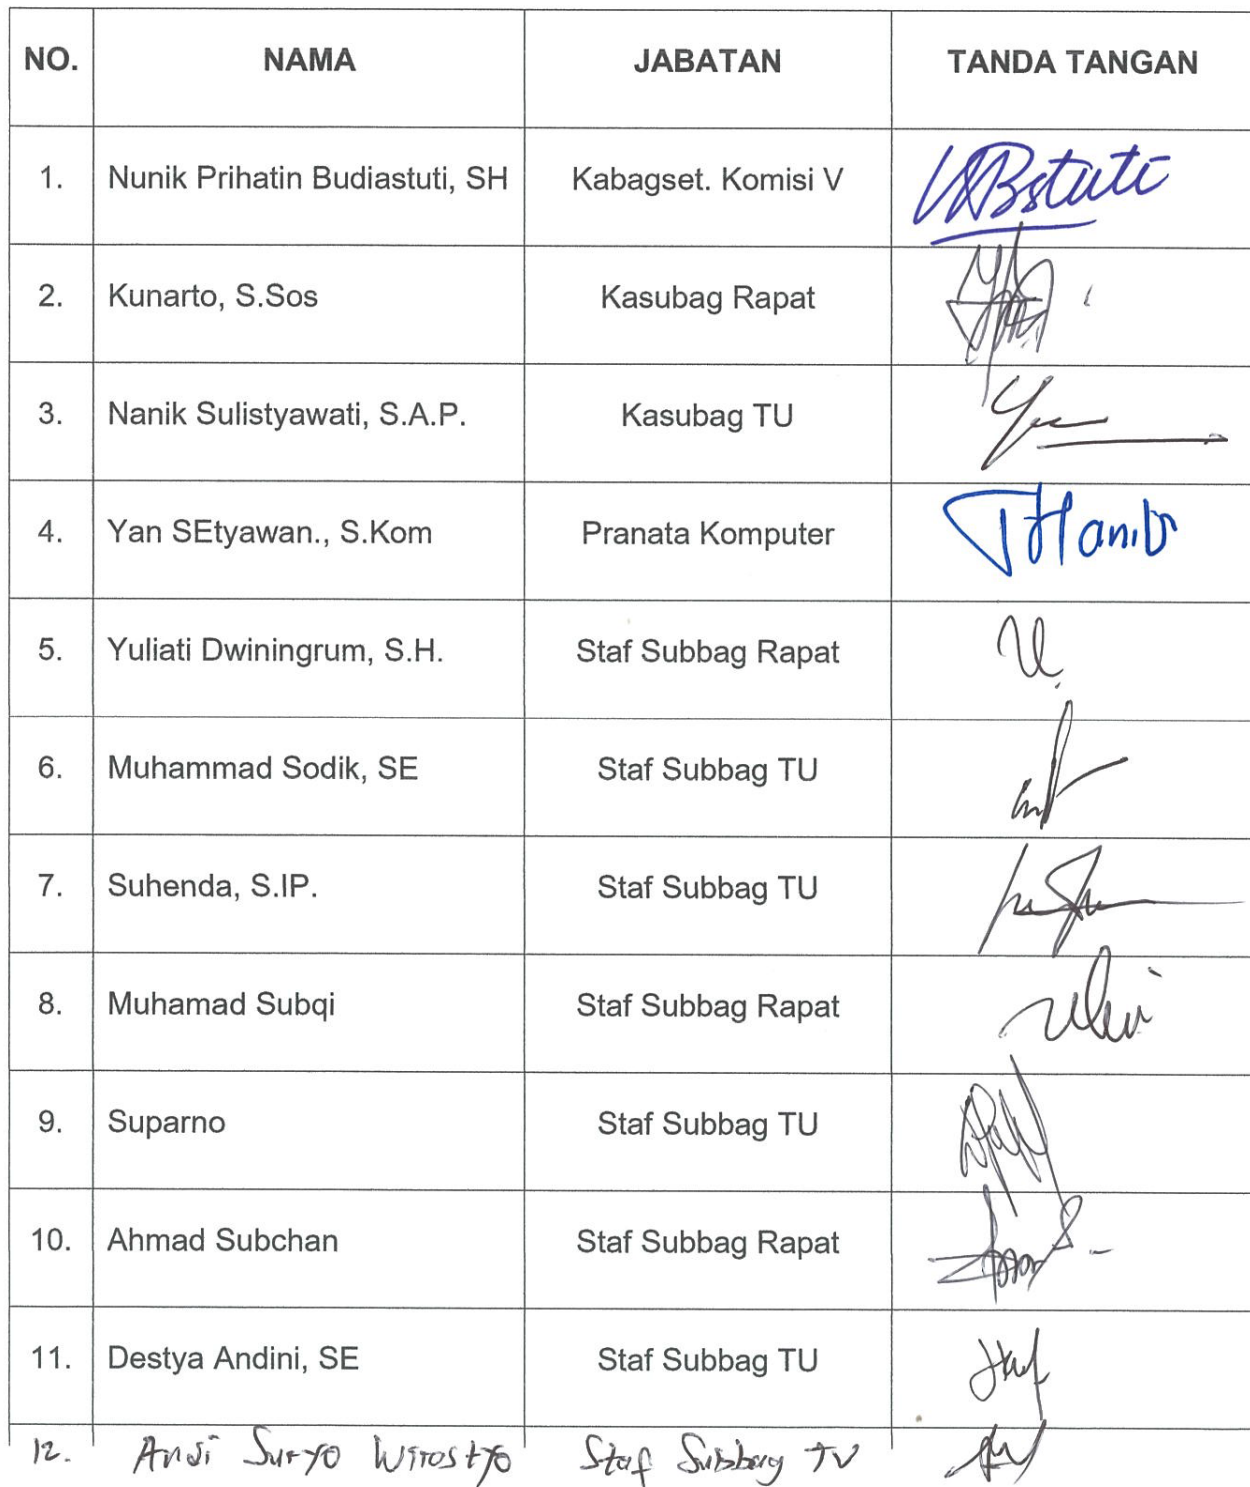 NO. NAMA JABATAN TANDA TANGAN
1. Nunik Prihatin Budiastuti, SH Kabagset. Komisi V
2. Kunarto, S.Sos Kasubag Rapat
3. Nanik Sulistyawati, S.A.P. Kasubag TU
4. Yan SEtyawan., S.Kom Pranata Komputer
5. Yuliati Dwiningrum, S.H. Staf Subbag Rapat
6. Muhammad Sodik, SE Staf Subbag TU
7. Suhenda, S.IP. Staf Subbag TU
8. Muhamad Subqi Staf Subbag Rapat
9. Suparno Staf Subbag TU
10. Ahmad Subchan Staf Subbag Rapat
11. Destya Andini, SE Staf Subbag TU
12. Andi Suryo Staf Subbag TU